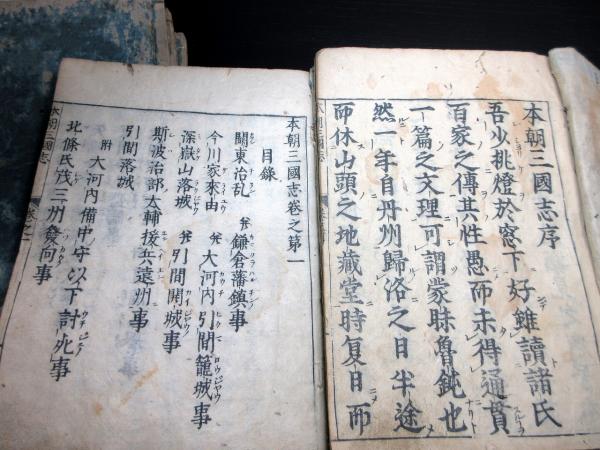 本朝三國志序
吾少挑燈於窓下好雖讀諸氏
百家之傳其性愚而未得通貫
一篇之文理可謂蒙昧魯鈍也
然一年自丹州歸洛之日半途
而休山頭之地藏堂時复日而
本朝三國志卷之第一
目錄
關東治乱 并 鎌倉藩鎮事
今川家來由 并 大河内引間籠城事
深嶽山落城 并 引間開城事
斯波治部太輔援兵遠州事
引間落城
附 大河内備中守以下討死事
北條氏茂三州發向事
本朝三國志
卷之一